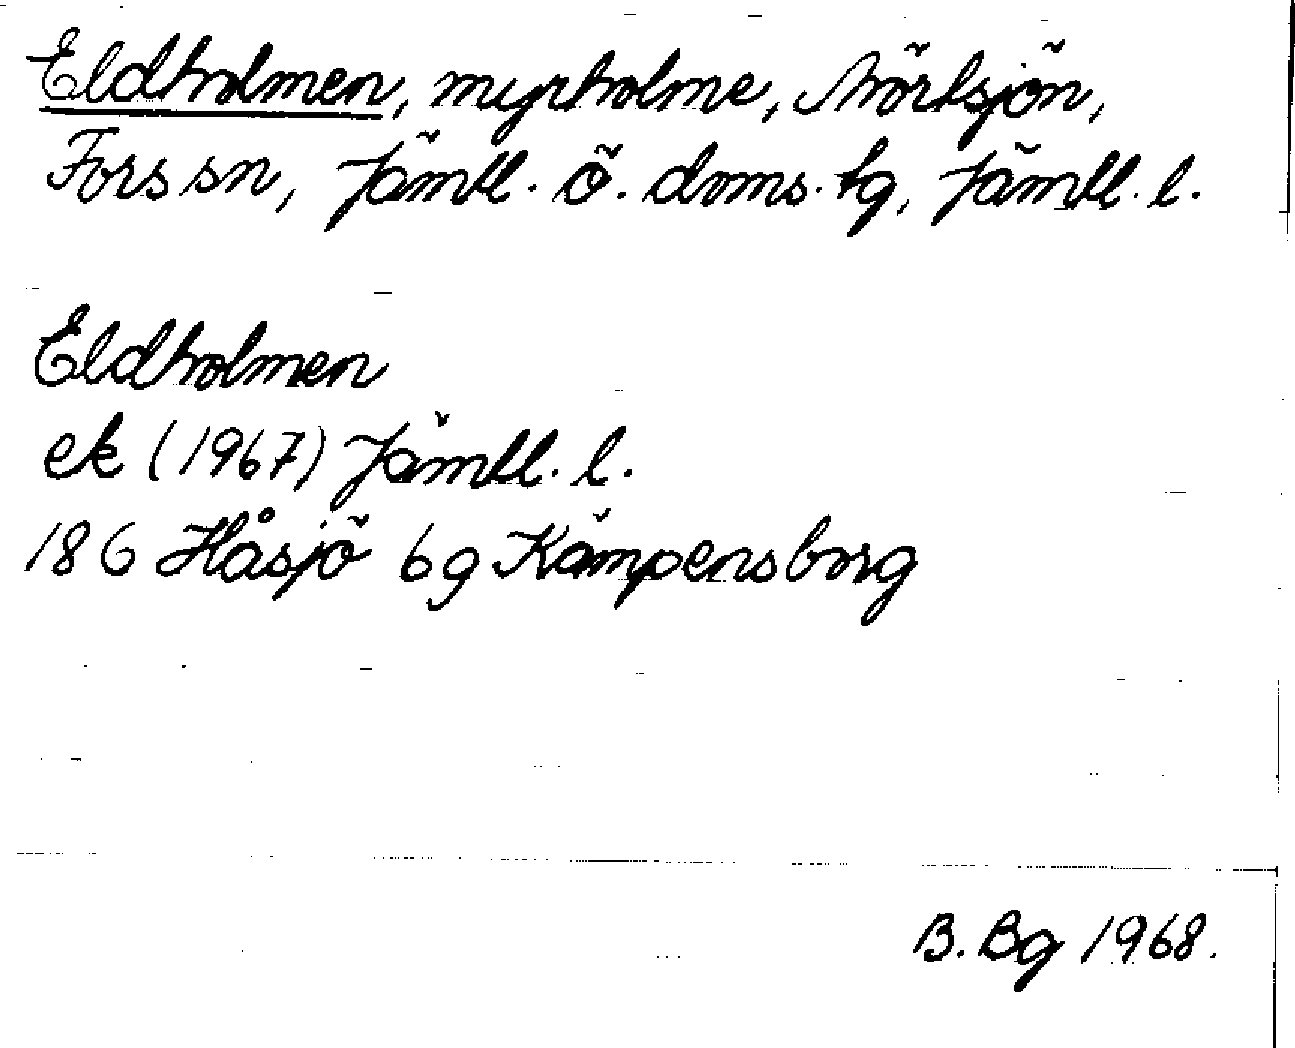 Eldholmen, myrholme, Mörtsjön,
Fors sn, Jämtl. ö. doms. tg, Jämtl. l.
Eldholmen
ek (1967) Jämtl. l.
18 G Håsjö 6g Kämpensborg
B. Bg 1968.